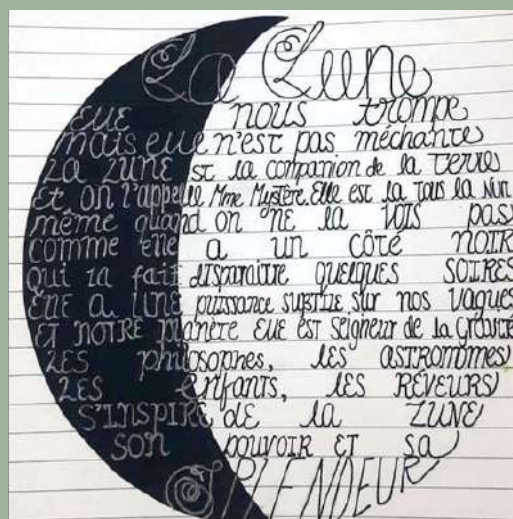 La Lune
Elle nous trompe
mais elle n'est pas méchante
La Lune est la companion de la terre
Et on l'appelle Mme Mystère. Elle est là tous la nuit
même quand on ne la vois pas
comme elle a un côté noir
qui la fait disparaitre quelques soires
Elle a une puissance subtile sur nos vagues
Et notre planère Elle est seigneur de la gravité
Les philosophes, les astronomes
Les enfants, les rêveurs
S'inspire de la Lune
son pouvoir et sa
SPLENDEUR